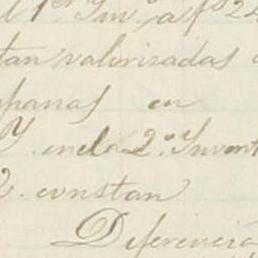 1er Inv. a fs 24
tan valorizadas
panas en
Y en la 2º Invent
constan
Diferencia